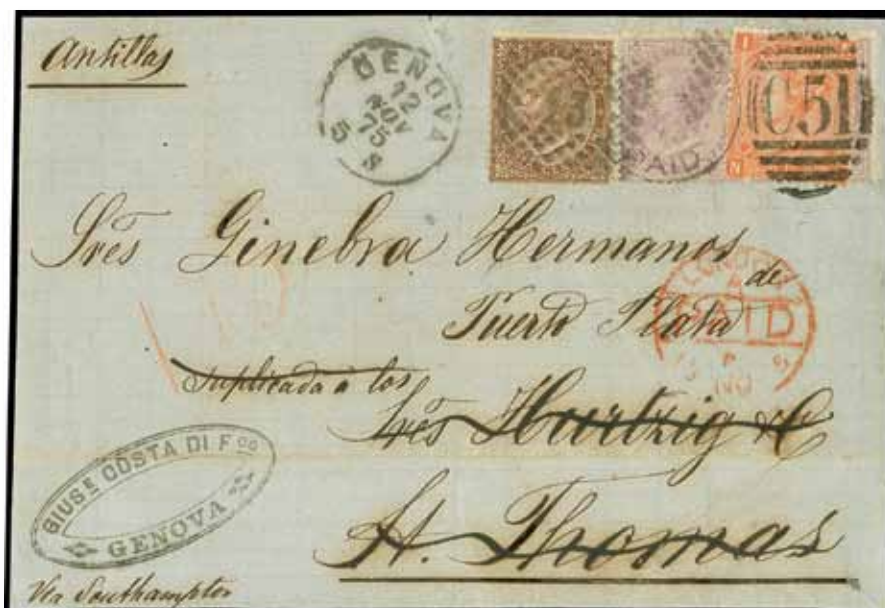 Antillas
GENOVA
12
NOV
75
8 S
PAID
I
C51
N
Srēs Ginebra Hermanos
de
Puerto Plata
LONDON
PAID
NO
Suplicada á los
Srēs Hurtzig & C
St. Thomas
GIUSE COSTA DI FCO
GENOVA
Via Southampton